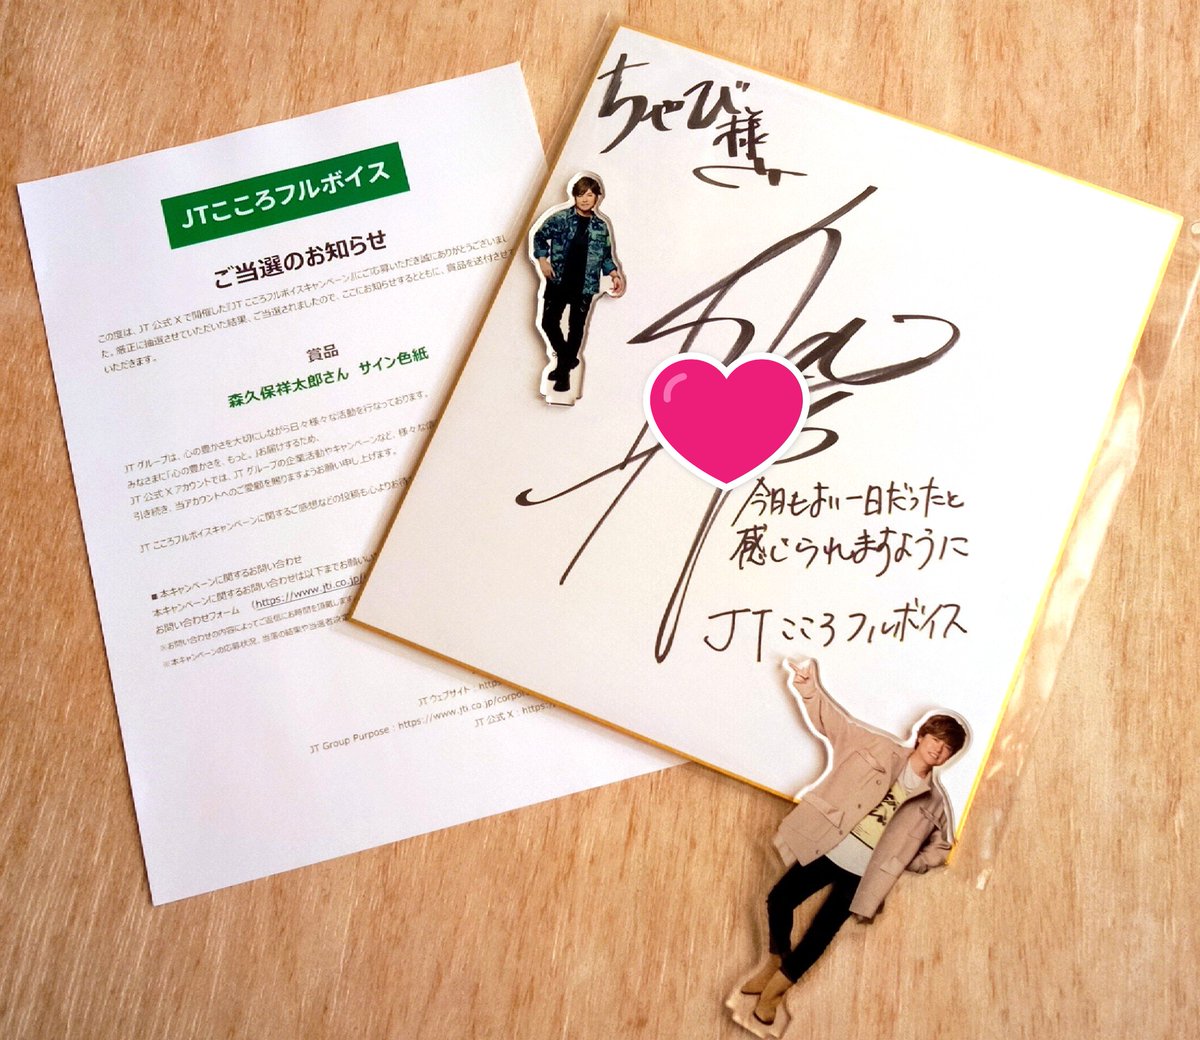 JTこころフルボイス
ご当選のお知らせ
この度は、JT 公式 X で開催した『JT こころフルボイスキャンペーン』にご応募いただき誠にありがとうございまし
た。厳正に抽選させていただいた結果、ご当選されましたので、ここにお知らせするとともに、賞品を送付させて
いただきます。
賞品
森久保祥太郎さん サイン色紙
JT グループは、心の豊かさを大切にしながら日々様々な活動を行なっております。
みなさまに「心の豊かさを、もっと。」お届けするため、
JT 公式 X アカウントでは、JT グループの企業活動やキャンペーンなど、様々な
引き続き、当アカウントへのご愛顧を賜りますようお願い申し上げます。
JT こころフルボイスキャンペーンに関するご感想などの投稿も心よりお待
■ 本キャンペーンに関するお問い合わせ
本キャンペーンに関するお問い合わせは以下までお願いい
お問い合わせフォーム （https://www.jti.co.jp/
※お問い合わせの内容によってご返信にお時間を頂戴します
※本キャンペーンの応募状況、当落の結果や当選者
JT ウェブサイト：https
JT Group Purpose：https://www.jti.co.jp/corpora
JT 公式 X：https:/
ちゃび様
今日もよい一日だったと
感じられますように
JTこころフルボイス